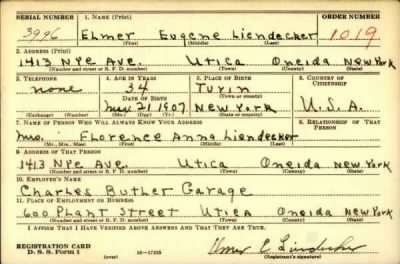 SERIAL NUMBER 1. NAME (Print) ORDER NUMBER
3996 Elmer Eugene Liendecker 1019
(First) (Middle) (Last)
2. ADDRESS (Print)
1413 Nye Ave. Utica Oneida New York
(Number and street or R. F. D. number) (Town) (County) (State)
3. TELEPHONE 4. AGE IN YEARS 5. PLACE OF BIRTH 6. COUNTRY OF CITIZENSHIP
none 34 Turin
DATE OF BIRTH (Town or county)
May 21 1907 New York U.S.A.
(Exchange) (Number) (Mo.) (Day) (Yr.) (State or country)
7. NAME OF PERSON WHO WILL ALWAYS KNOW YOUR ADDRESS 8. RELATIONSHIP OF THAT PERSON
Mrs. Florence Anna Liendecker
(Mr., Mrs., Miss) (First) (Middle) (Last)
9. ADDRESS OF THAT PERSON
1413 Nye Ave. Utica Oneida New York
(Number and street or R. F. D. number) (Town) (County) (State)
10. EMPLOYER'S NAME
Charles Butler Garage
11. PLACE OF EMPLOYMENT OR BUSINESS
600 Plant Street Utica Oneida New York
(Number and street or R. F. D. number) (Town) (County) (State)
I AFFIRM THAT I HAVE VERIFIED ABOVE ANSWERS AND THAT THEY ARE TRUE.
REGISTRATION CARD
D. S. S. Form 1 (over) 16—17105 Elmer E Liendecker
(Registrant's signature)